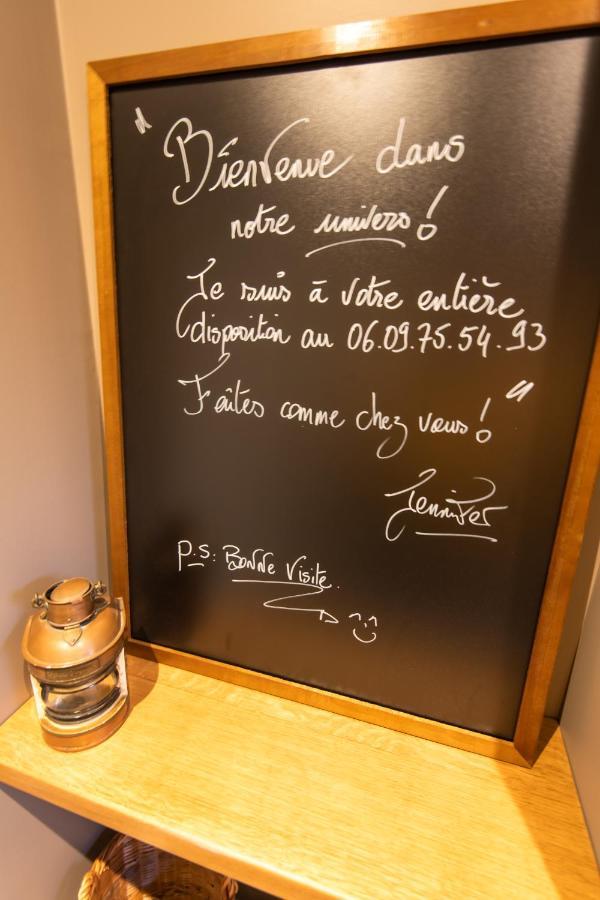 " Bienvenue dans
notre univers !
Je suis à votre entière
disposition au 06.09.75.54.93
Faîtes comme chez vous ! "
Jennifer
P.S: Bonne Visite.